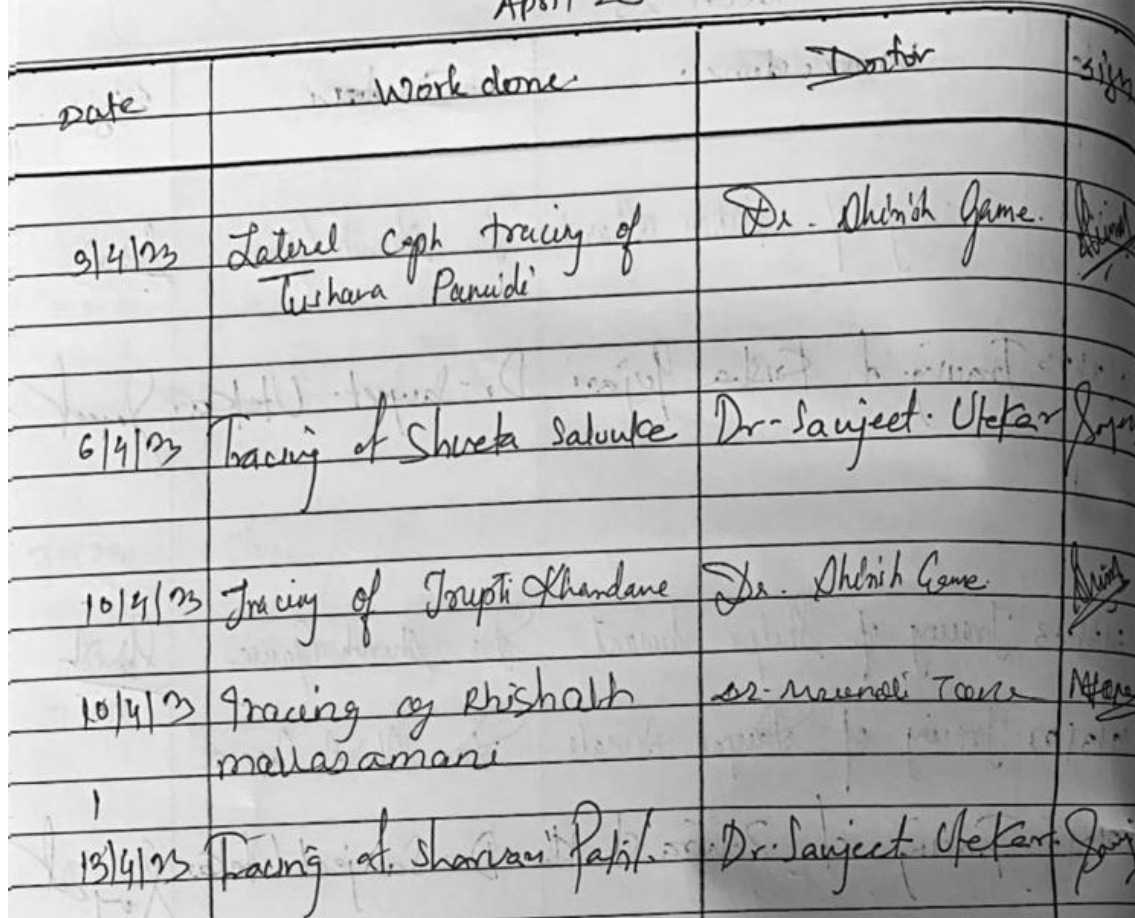 April
Date Work done Doctor Sign
3/4/23 Lateral Ceph tracing of Dr. Dhinish Game.
Tushara Panuidi
6/4/23 Tracing of Shweta Salunke Dr-Sanjeet. Utekar
10/4/23 Tracing of Trupti Khandane Dr. Dhinish Game.
10/4/23 Tracing of Rhishabh
mallasamani
13/4/23 Tracing of Sharvari Patil. Dr. Sanjeet Utekar.